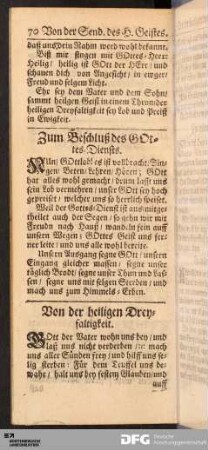 70 Von der Send. des H. Geistes.
daß uns dein Nahm werd wohl bekannt.
Biß wir singen mit GOttes-Heer:
Heilig/ heilig ist GOtt der HErr/ und
schauen dich von Angesicht/ in ewger
Freud und selgem Licht.
Ehr sey dem Vater und dem Sohn/
sammt heilgen Geist in einem Thron/der
heiligen Dreyfaltigkeit sey Lob und Preiß
in Ewigkeit.
Zum Beschluß des GOt-
tes-Diensts.
NUn GOttlob/ es ist vollbracht/ Sin-
gen/ Beten/ Lehren/ Hören; GOtt
hat alles wohl gemacht/ drum laßt uns
sein Lob vermehren/ unser GOtt sey hoch
gepreiset/ welcher uns so herrlich speiset.
Weil der Gottes-Dienst ist aus/mitge-
theilet auch der Segen/ so gehn wir mit
Freuden nach Hauß/ wandeln fein auff
unsern Wegen/ GOttes Geist uns fer-
ner leite/ und uns alle wohl bereite.
Unsern Ausgang segne GOtt/ unsern
Eingang gleicher massen/ segne unser
täglich Brodt/ segne unser Thun und Las-
sen/ segne uns mit selgen Sterben/ und
mach uns zum Himmels-Erben.
Von der heiligen Drey-
faltigkeit.
GOtt der Vater wohn uns bey/ und
laß uns nicht verderben/ mach
uns aller Sünden frey/ und hilff uns se-
lig sterben: Für dem Teuffel uns be-
wahr/ halt uns bey festem Glauben/und
auff
DFG Deutsche
Forschungsgemeinschaft